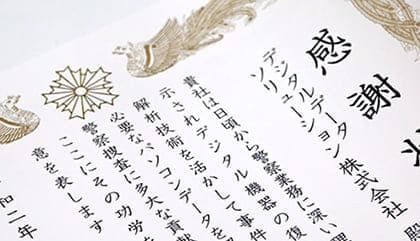 感謝
デジタルデータ
ソリューション
株式会社
貴社は日頃から警察業務に深い
示されデジタル機器の復
解析技術を活かして事件
必要なパソコンデータを
警察捜査に多大な貢献
ここにその功労を
意を表します
和二年